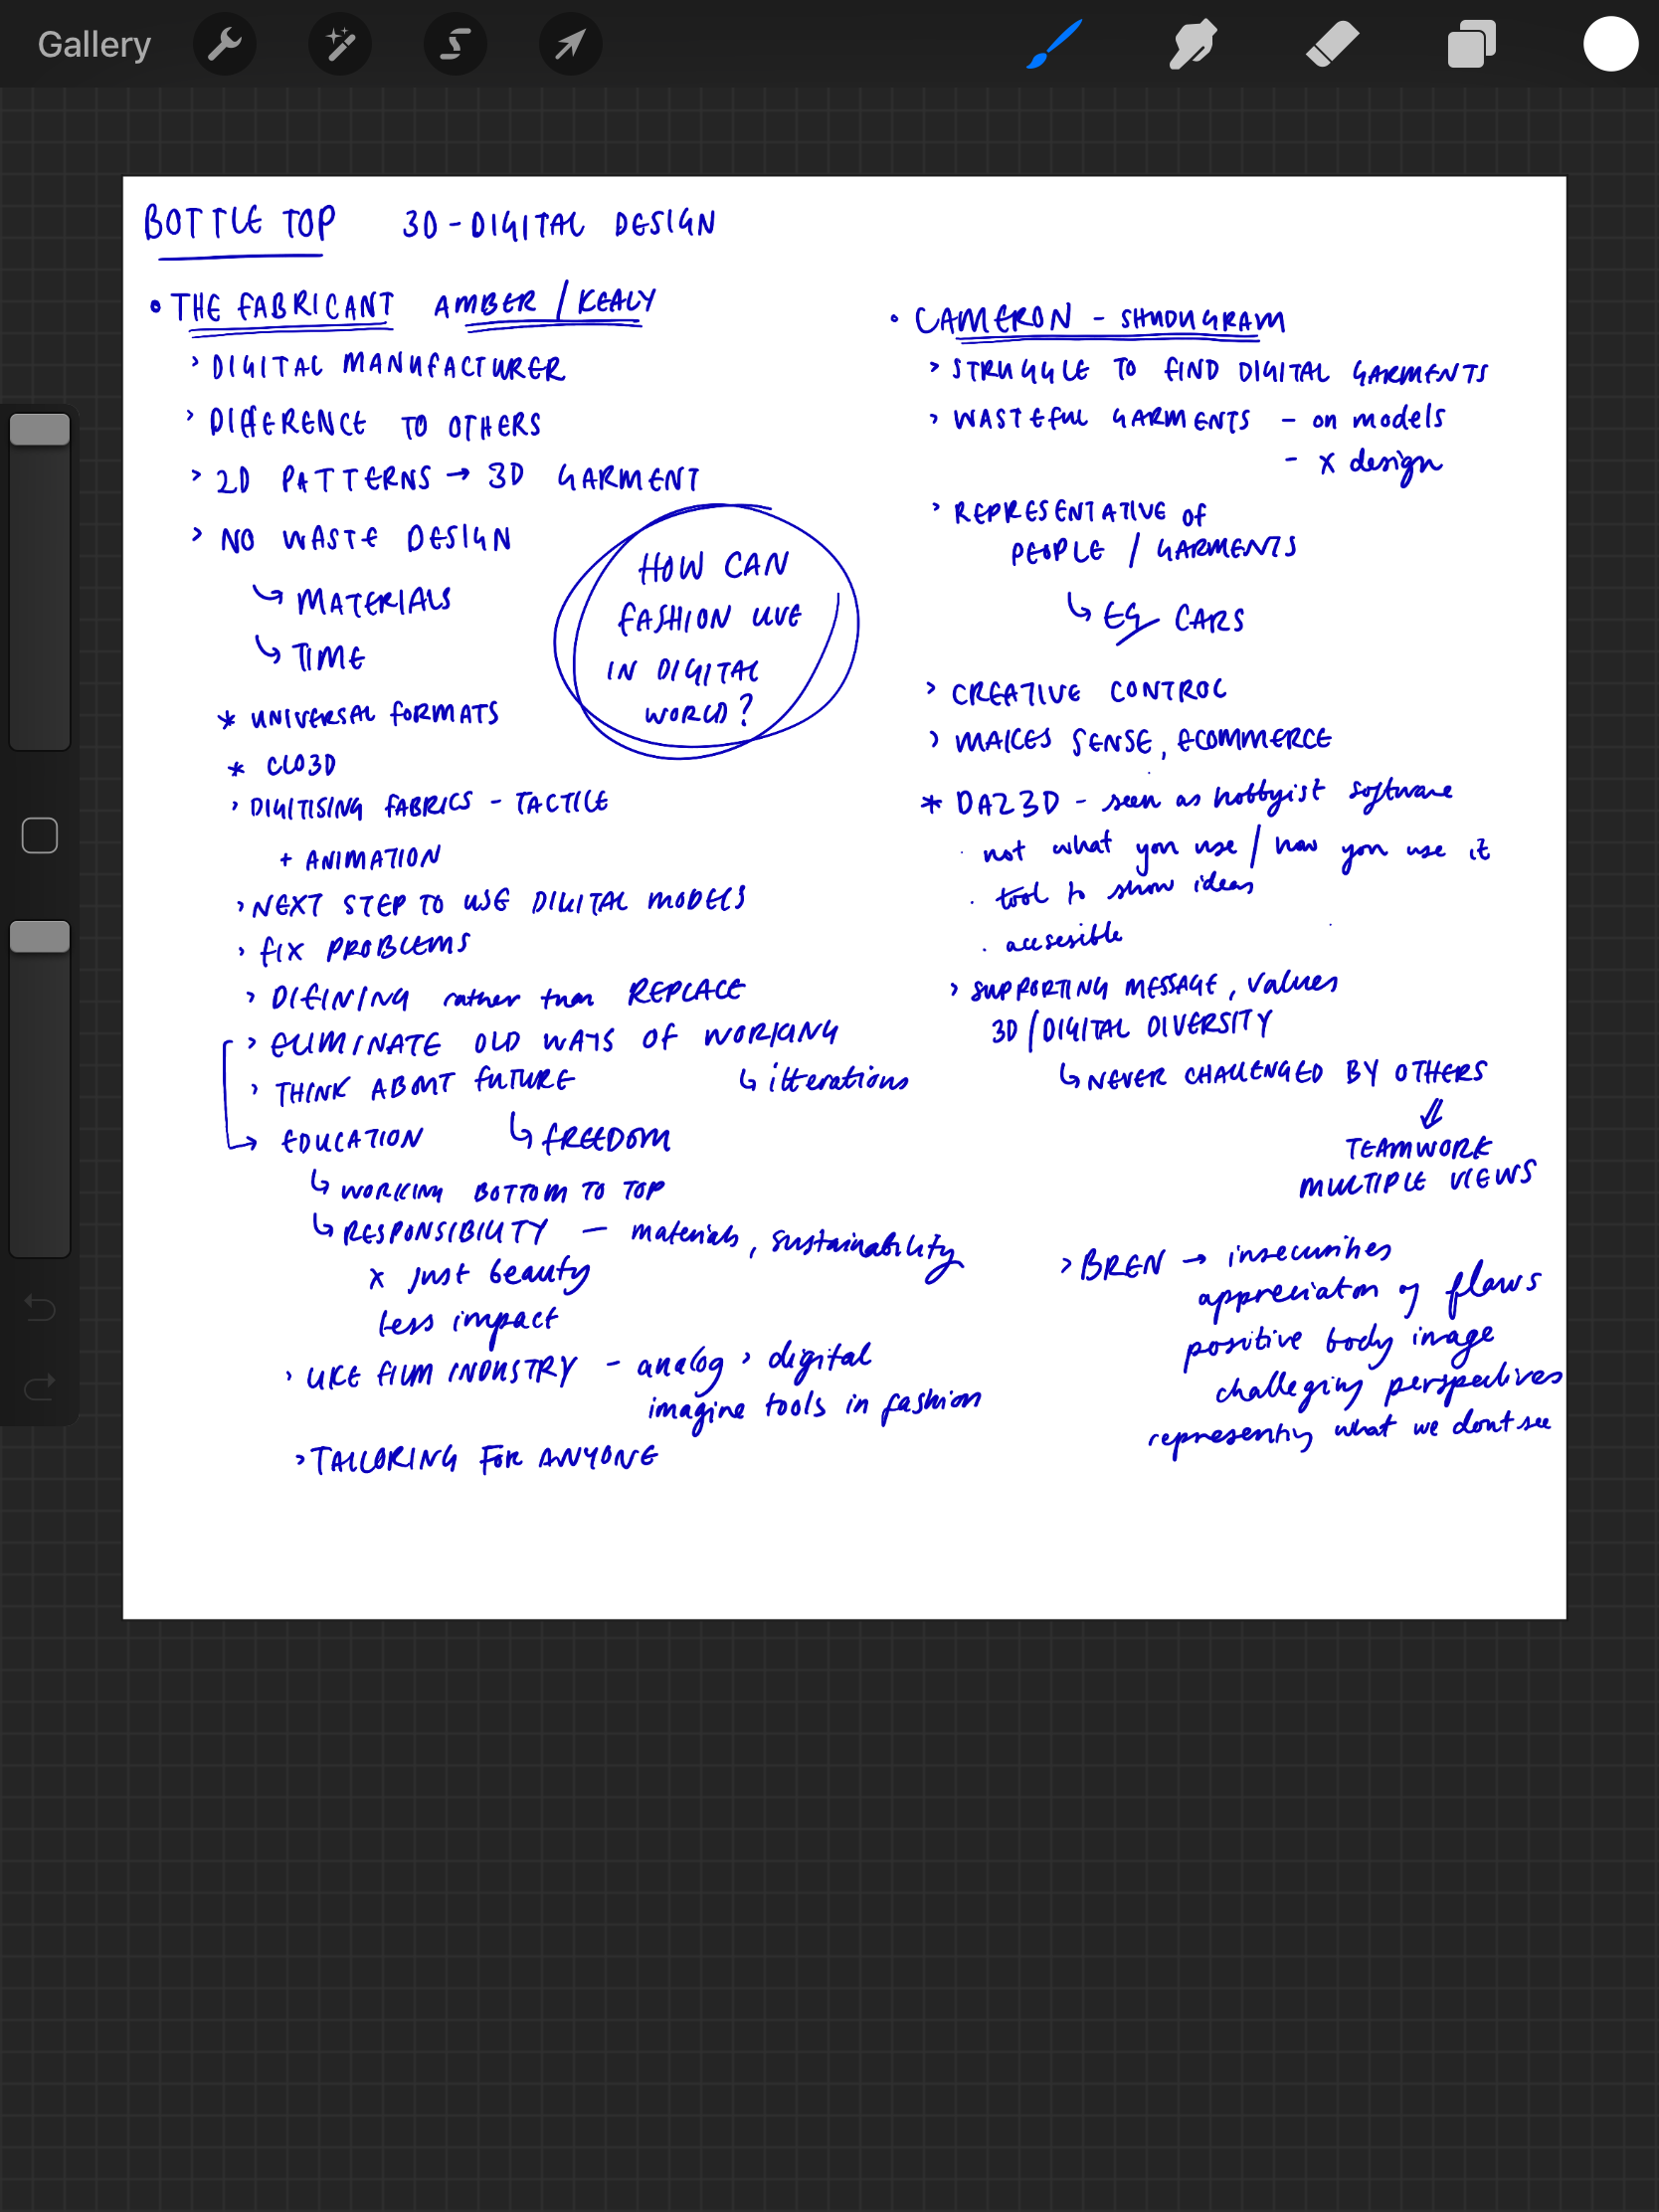 Gallery
BOTTLE TOP 3D - DIGITAL DESIGN
• THE FABRICANT AMBER / KEALY
> DIGITAL MANUFACTURER
> DIFFERENCE TO OTHERS
> 2D PATTERNS → 3D GARMENT
> NO WASTE DESIGN
↳ MATERIALS
↳ TIME
* UNIVERSAL FORMATS
* CLO3D
> DIGITISING FABRICS - TACTILE
+ ANIMATION
> NEXT STEP TO USE DIGITAL MODELS
> FIX PROBLEMS
> DIFINING rather than REPLACE
> ELIMINATE OLD WAYS OF WORKING
↳ itterations
> THINK ABOUT FUTURE
↳ FREEDOM
→ EDUCATION
↳ WORKING BOTTOM TO TOP
↳ RESPONSIBILITY — materials, sustainability
x just beauty
less impact
> LIKE FILM INDUSTRY - analog > digital
imagine tools in fashion
> TAILORING FOR ANYONE
HOW CAN
FASHION LIVE
IN DIGITAL
WORLD?
• CAMERON - SHUDUGRAM
> STRUGGLE TO FIND DIGITAL GARMENTS
> WASTEFUL GARMENTS - on models
- x design
> REPRESENTATIVE OF
PEOPLE / GARMENTS
↳ EG CARS
> CREATIVE CONTROL
> MAKES SENSE, ECOMMERCE
* DAZ3D - seen as hobbyist software
· not what you use / how you use it
· tool to show ideas
· accesible
> SUPPORTING MESSAGE, values
3D / DIGITAL DIVERSITY
↳ NEVER CHALLENGED BY OTHERS
⇓
TEAMWORK
MULTIPLE VIEWS
> BREN → insecurities
appreciaton of flaws
positive body image
challeging perspectives
representing what we dont see